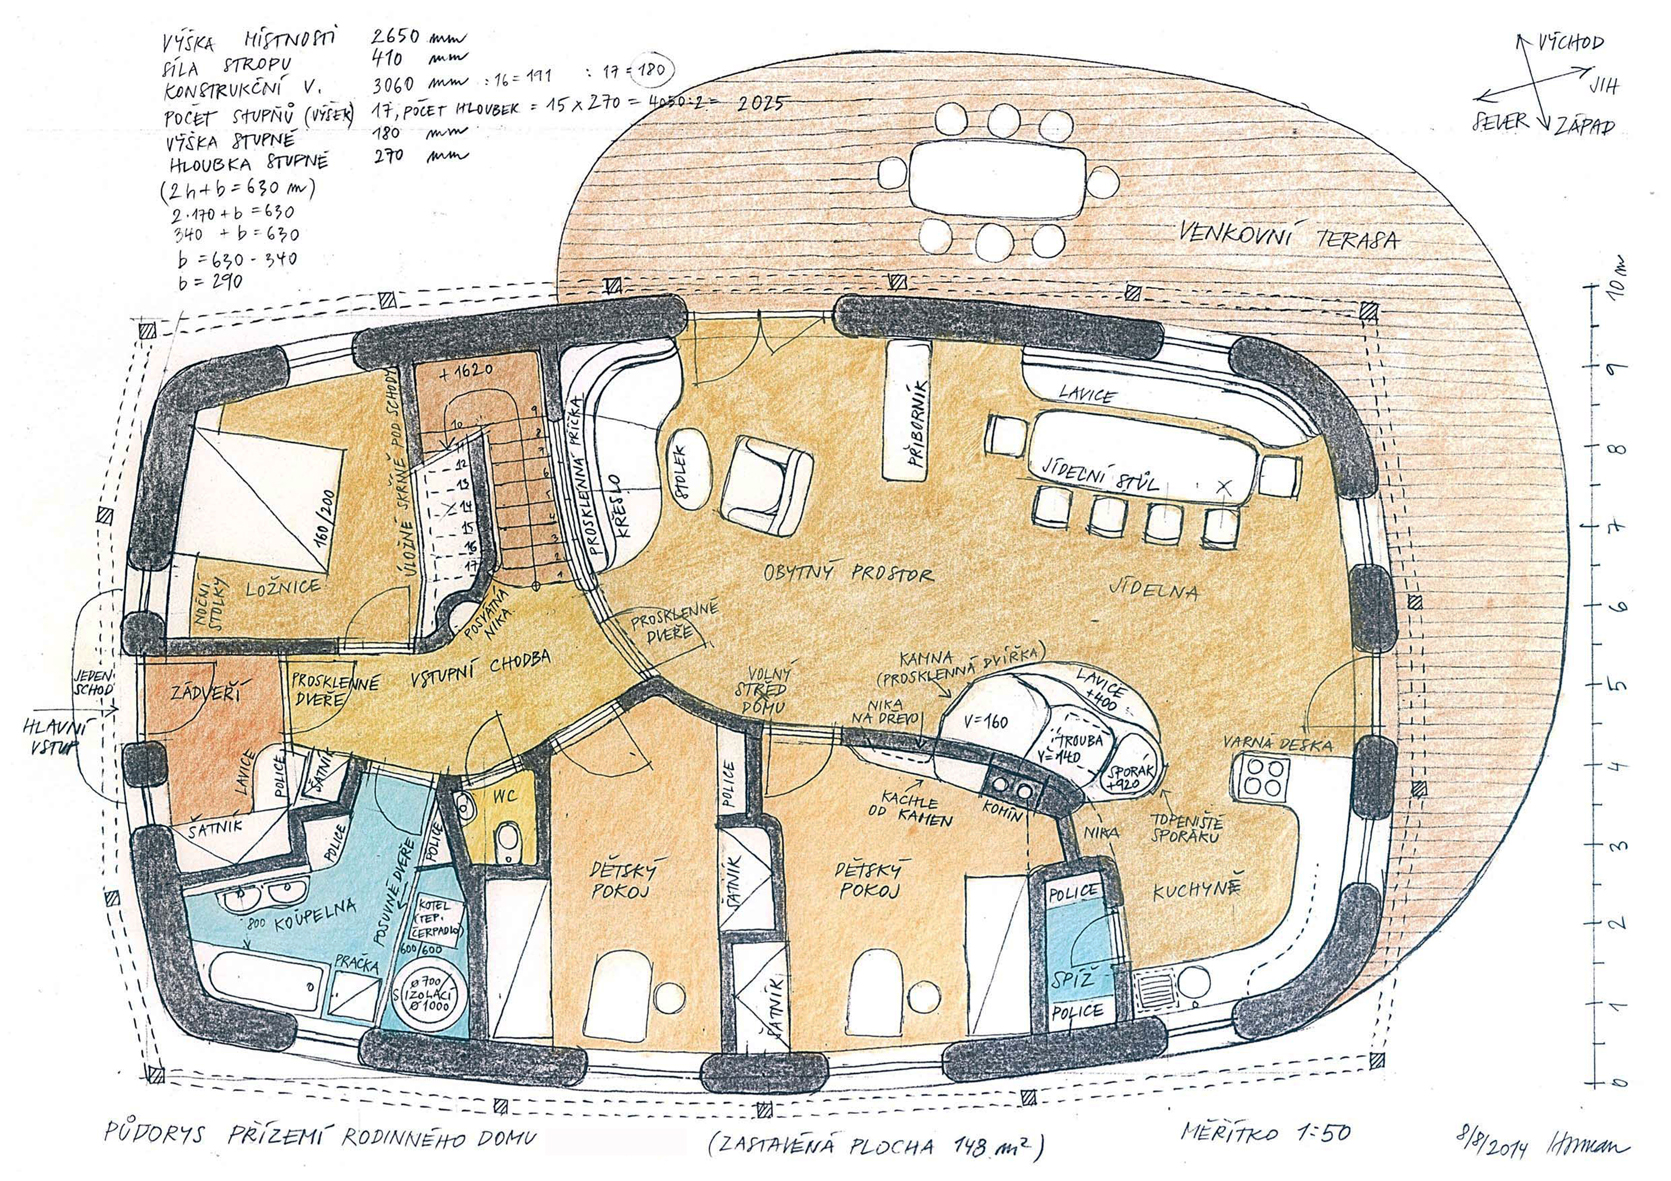 VÝŠKA MÍSTNOSTI 2650 mm
SÍLA STROPU 410 mm
KONSTRUKČNÍ V. 3060 mm :16=191 :17=180
POČET STUPŇŮ (VÝŠEK) 17, POČET HLOUBEK = 15 x 270 = 4050:2= 2025
VÝŠKA STUPNĚ 180 mm
HLOUBKA STUPNĚ 270 mm
(2h+b=630 m)
2·170+b=630
340 +b=630
b=630-340
b=290
VÝCHOD
JIH
SEVER
ZÁPAD
VENKOVNÍ TERASA
10 m
9
8
7
6
5
4
3
2
1
0
+1620
ÚLOŽNÉ SKŘÍNĚ POD SCHODY
9
8
7
6
5
4
3
2
1
10
11
12
13
14
15
16
17
PROSKLENNÁ PŘÍČKA
KŘESLO
STOLEK
PŘÍBORNÍK
LAVICE
JÍDELNÍ STŮL
160/200
NOČNÍ
STOLKY
LOŽNICE
POSVÁTNÁ
NIKA
OBYTNÝ PROSTOR
JÍDELNA
PROSKLENNÉ
DVEŘE
JEDEN
SCHOD
HLAVNÍ
VSTUP
ZÁDVEŘÍ
PROSKLENNÉ
DVEŘE
VSTUPNÍ CHODBA
VOLNÝ
STŘED
DOMU
KAMNA
(PROSKLENNÁ DVÍŘKA)
NIKA
NA DŘEVO
LAVICE
+400
V=160
TROUBA
V=140
SPORÁK
+920
VARNÁ DESKA
LAVICE
POLICE
ŠATNÍK
ŠATNÍK
POLICE
POLICE
WC
POLICE
KACHLE
OD KAMEN
KOMÍN
NIKA
TOPENIŠTĚ
SPORÁKU
DĚTSKÝ
POKOJ
ŠATNÍK
DĚTSKÝ
POKOJ
POLICE
KUCHYNĚ
800 KOUPELNA
POSUVNÉ DVEŘE
KOTEL
(TEP.
ČERPADLO)
600/600
PRAČKA
Ø700/
S IZOLACÍ
Ø1000
ŠATNÍK
SPÍŽ
POLICE
PŮDORYS PŘÍZEMÍ RODINNÉHO DOMU
(ZASTAVĚNÁ PLOCHA 148 m²)
MĚŘÍTKO 1:50
8/8/2014